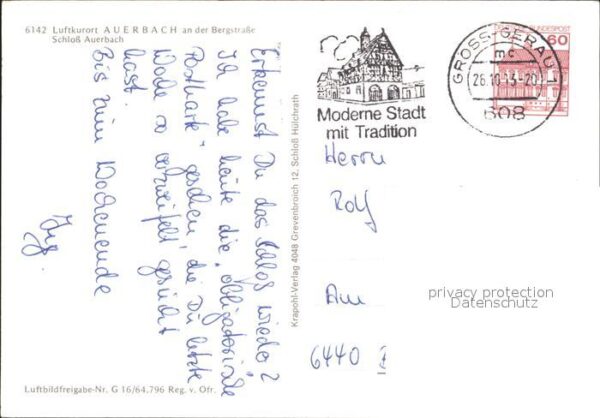 6142 Luftkurort AUERBACH an der Bergstraße
Schloß Auerbach
Erkennst Du das Schloß wieder?
Ich habe heute die "obligatorische
Postkarte" gesehen, die Du letzte
Woche so verzweifelt gesucht
hast.
Bis zum Wochenende
Krapohl-Verlag 4048 Grevenbroich 12, Schloß Hülchrath
Luftbildfreigabe-Nr. G 16/64,796 Reg. v. Ofr.
Moderne Stadt
mit Tradition
GROSS-GERAU 1
mc
26.10. -20
608
BUNDESPOST
60
Herrn
Rolf
Am
6440
privacy protection
Datenschutz